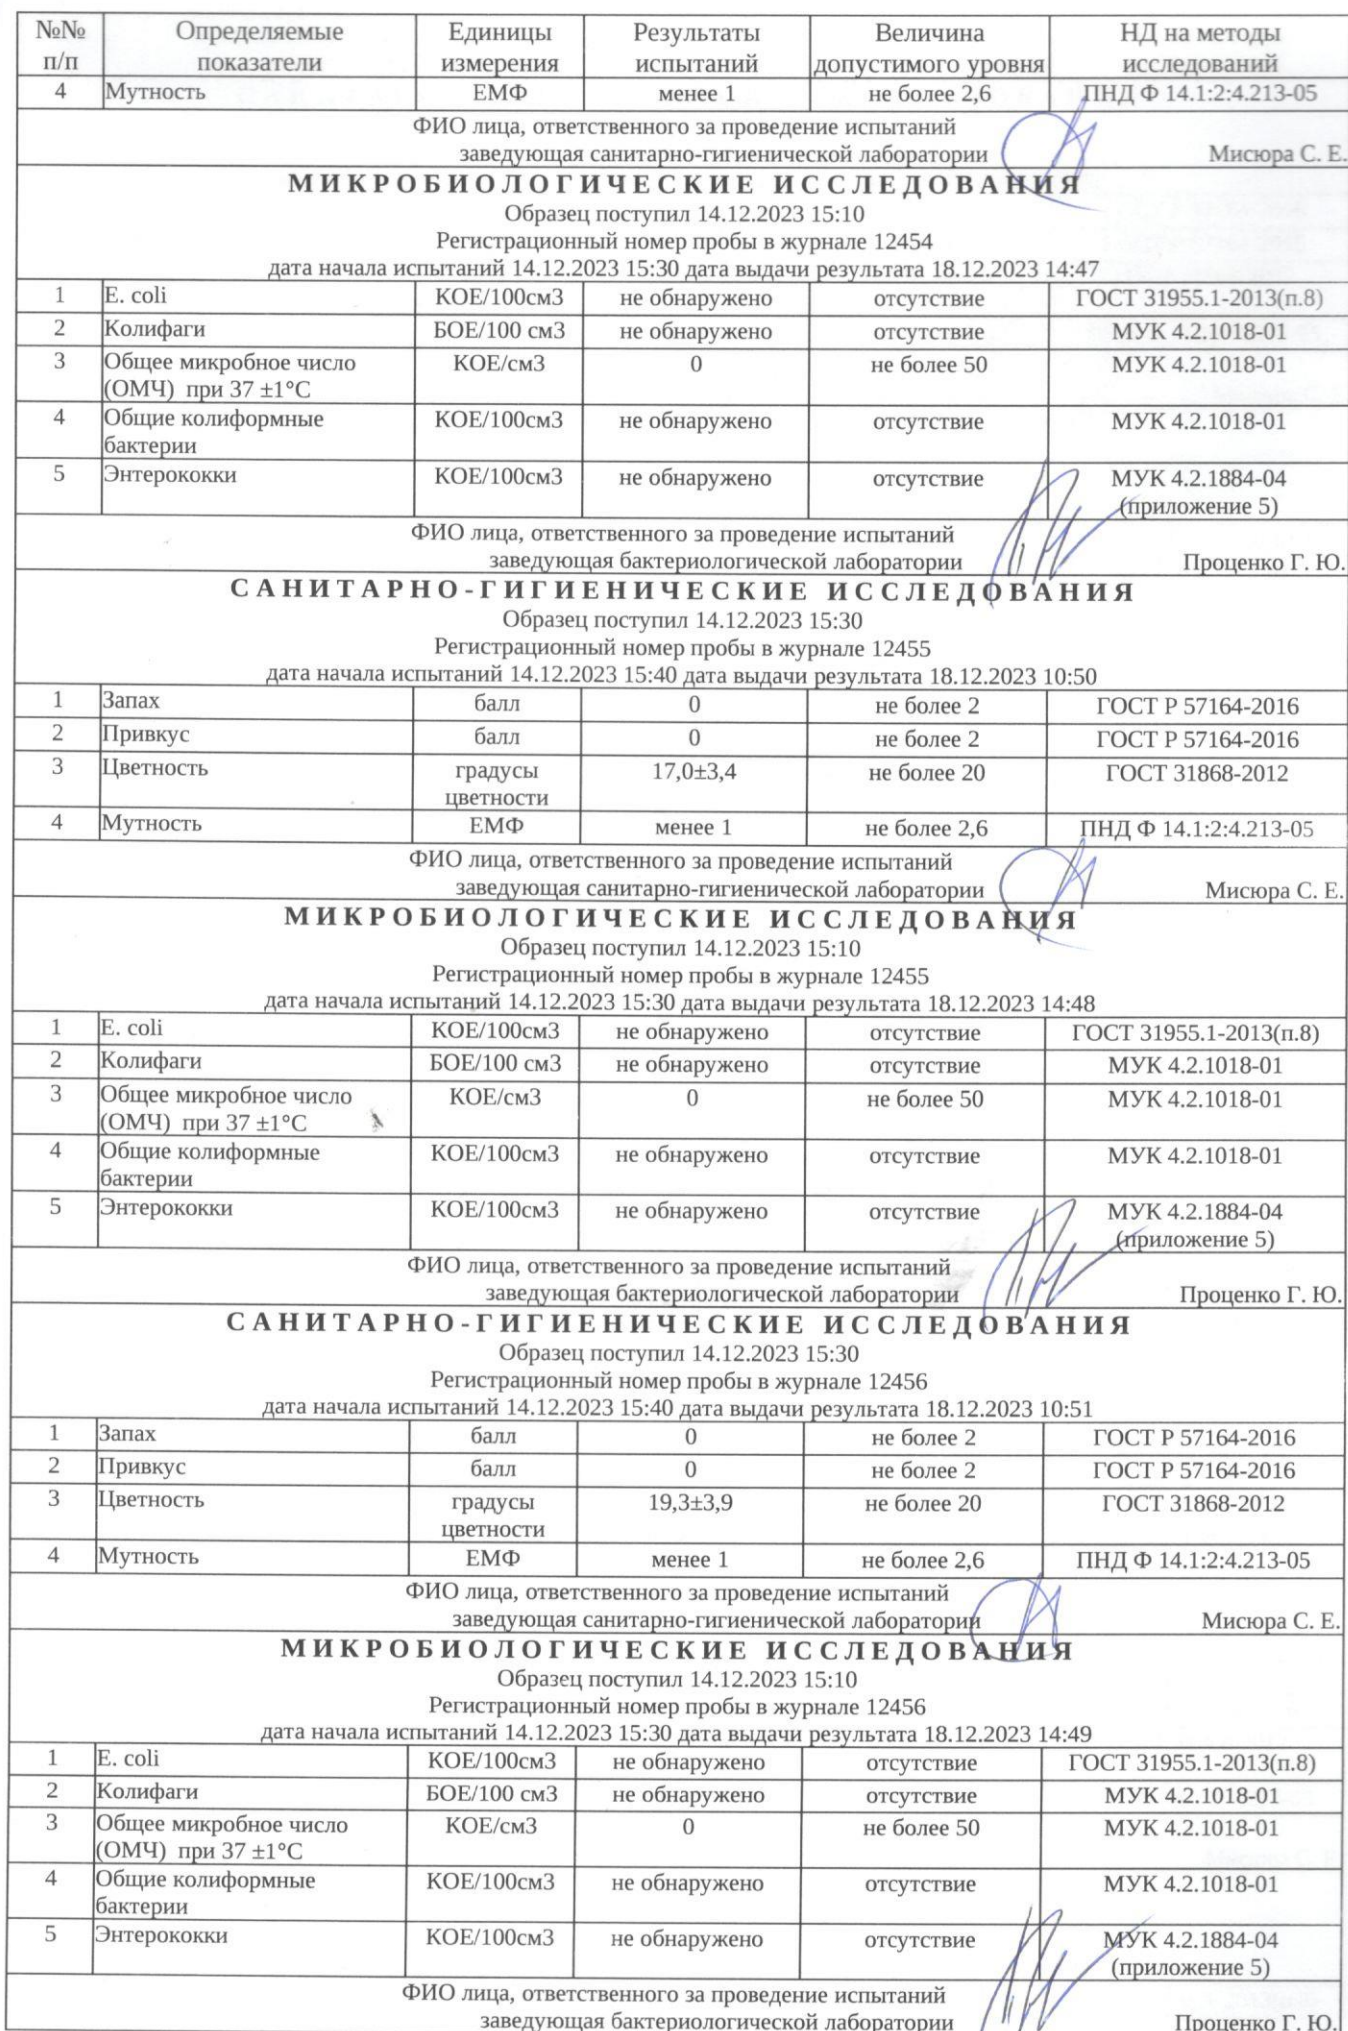 №№ Определяемые Единицы Результаты Величина НД на методы
п/п показатели измерения испытаний допустимого уровня исследований
4 Мутность ЕМФ менее 1 не более 2,6 ПНД Ф 14.1:2:4.213-05
ФИО лица, ответственного за проведение испытаний
заведующая санитарно-гигиенической лаборатории Мисюра С. Е.
МИКРОБИОЛОГИЧЕСКИЕ ИССЛЕДОВАНИЯ
Образец поступил 14.12.2023 15:10
Регистрационный номер пробы в журнале 12454
дата начала испытаний 14.12.2023 15:30 дата выдачи результата 18.12.2023 14:47
1 E. coli КОЕ/100см3 не обнаружено отсутствие ГОСТ 31955.1-2013(п.8)
2 Колифаги БОЕ/100 см3 не обнаружено отсутствие МУК 4.2.1018-01
3 Общее микробное число КОЕ/см3 0 не более 50 МУК 4.2.1018-01
(ОМЧ) при 37 ±1°С
4 Общие колиформные КОЕ/100см3 не обнаружено отсутствие МУК 4.2.1018-01
бактерии
5 Энтерококки КОЕ/100см3 не обнаружено отсутствие МУК 4.2.1884-04
(приложение 5)
ФИО лица, ответственного за проведение испытаний
заведующая бактериологической лаборатории Проценко Г. Ю.
САНИТАРНО-ГИГИЕНИЧЕСКИЕ ИССЛЕДОВАНИЯ
Образец поступил 14.12.2023 15:30
Регистрационный номер пробы в журнале 12455
дата начала испытаний 14.12.2023 15:40 дата выдачи результата 18.12.2023 10:50
1 Запах балл 0 не более 2 ГОСТ Р 57164-2016
2 Привкус балл 0 не более 2 ГОСТ Р 57164-2016
3 Цветность градусы 17,0±3,4 не более 20 ГОСТ 31868-2012
цветности
4 Мутность ЕМФ менее 1 не более 2,6 ПНД Ф 14.1:2:4.213-05
ФИО лица, ответственного за проведение испытаний
заведующая санитарно-гигиенической лаборатории Мисюра С. Е.
МИКРОБИОЛОГИЧЕСКИЕ ИССЛЕДОВАНИЯ
Образец поступил 14.12.2023 15:10
Регистрационный номер пробы в журнале 12455
дата начала испытаний 14.12.2023 15:30 дата выдачи результата 18.12.2023 14:48
1 E. coli КОЕ/100см3 не обнаружено отсутствие ГОСТ 31955.1-2013(п.8)
2 Колифаги БОЕ/100 см3 не обнаружено отсутствие МУК 4.2.1018-01
3 Общее микробное число КОЕ/см3 0 не более 50 МУК 4.2.1018-01
(ОМЧ) при 37 ±1°С
4 Общие колиформные КОЕ/100см3 не обнаружено отсутствие МУК 4.2.1018-01
бактерии
5 Энтерококки КОЕ/100см3 не обнаружено отсутствие МУК 4.2.1884-04
(приложение 5)
ФИО лица, ответственного за проведение испытаний
заведующая бактериологической лаборатории Проценко Г. Ю.
САНИТАРНО-ГИГИЕНИЧЕСКИЕ ИССЛЕДОВАНИЯ
Образец поступил 14.12.2023 15:30
Регистрационный номер пробы в журнале 12456
дата начала испытаний 14.12.2023 15:40 дата выдачи результата 18.12.2023 10:51
1 Запах балл 0 не более 2 ГОСТ Р 57164-2016
2 Привкус балл 0 не более 2 ГОСТ Р 57164-2016
3 Цветность градусы 19,3±3,9 не более 20 ГОСТ 31868-2012
цветности
4 Мутность ЕМФ менее 1 не более 2,6 ПНД Ф 14.1:2:4.213-05
ФИО лица, ответственного за проведение испытаний
заведующая санитарно-гигиенической лаборатории Мисюра С. Е.
МИКРОБИОЛОГИЧЕСКИЕ ИССЛЕДОВАНИЯ
Образец поступил 14.12.2023 15:10
Регистрационный номер пробы в журнале 12456
дата начала испытаний 14.12.2023 15:30 дата выдачи результата 18.12.2023 14:49
1 E. coli КОЕ/100см3 не обнаружено отсутствие ГОСТ 31955.1-2013(п.8)
2 Колифаги БОЕ/100 см3 не обнаружено отсутствие МУК 4.2.1018-01
3 Общее микробное число КОЕ/см3 0 не более 50 МУК 4.2.1018-01
(ОМЧ) при 37 ±1°С
4 Общие колиформные КОЕ/100см3 не обнаружено отсутствие МУК 4.2.1018-01
бактерии
5 Энтерококки КОЕ/100см3 не обнаружено отсутствие МУК 4.2.1884-04
(приложение 5)
ФИО лица, ответственного за проведение испытаний
заведующая бактериологической лаборатории Проценко Г. Ю.